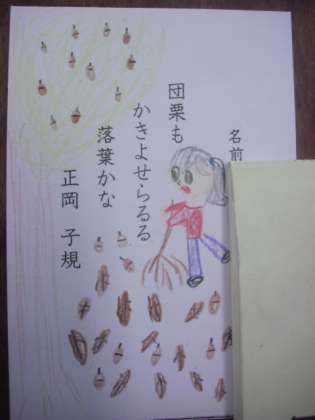 名前
団栗も
かきよせらるる
落葉かな
正岡 子規